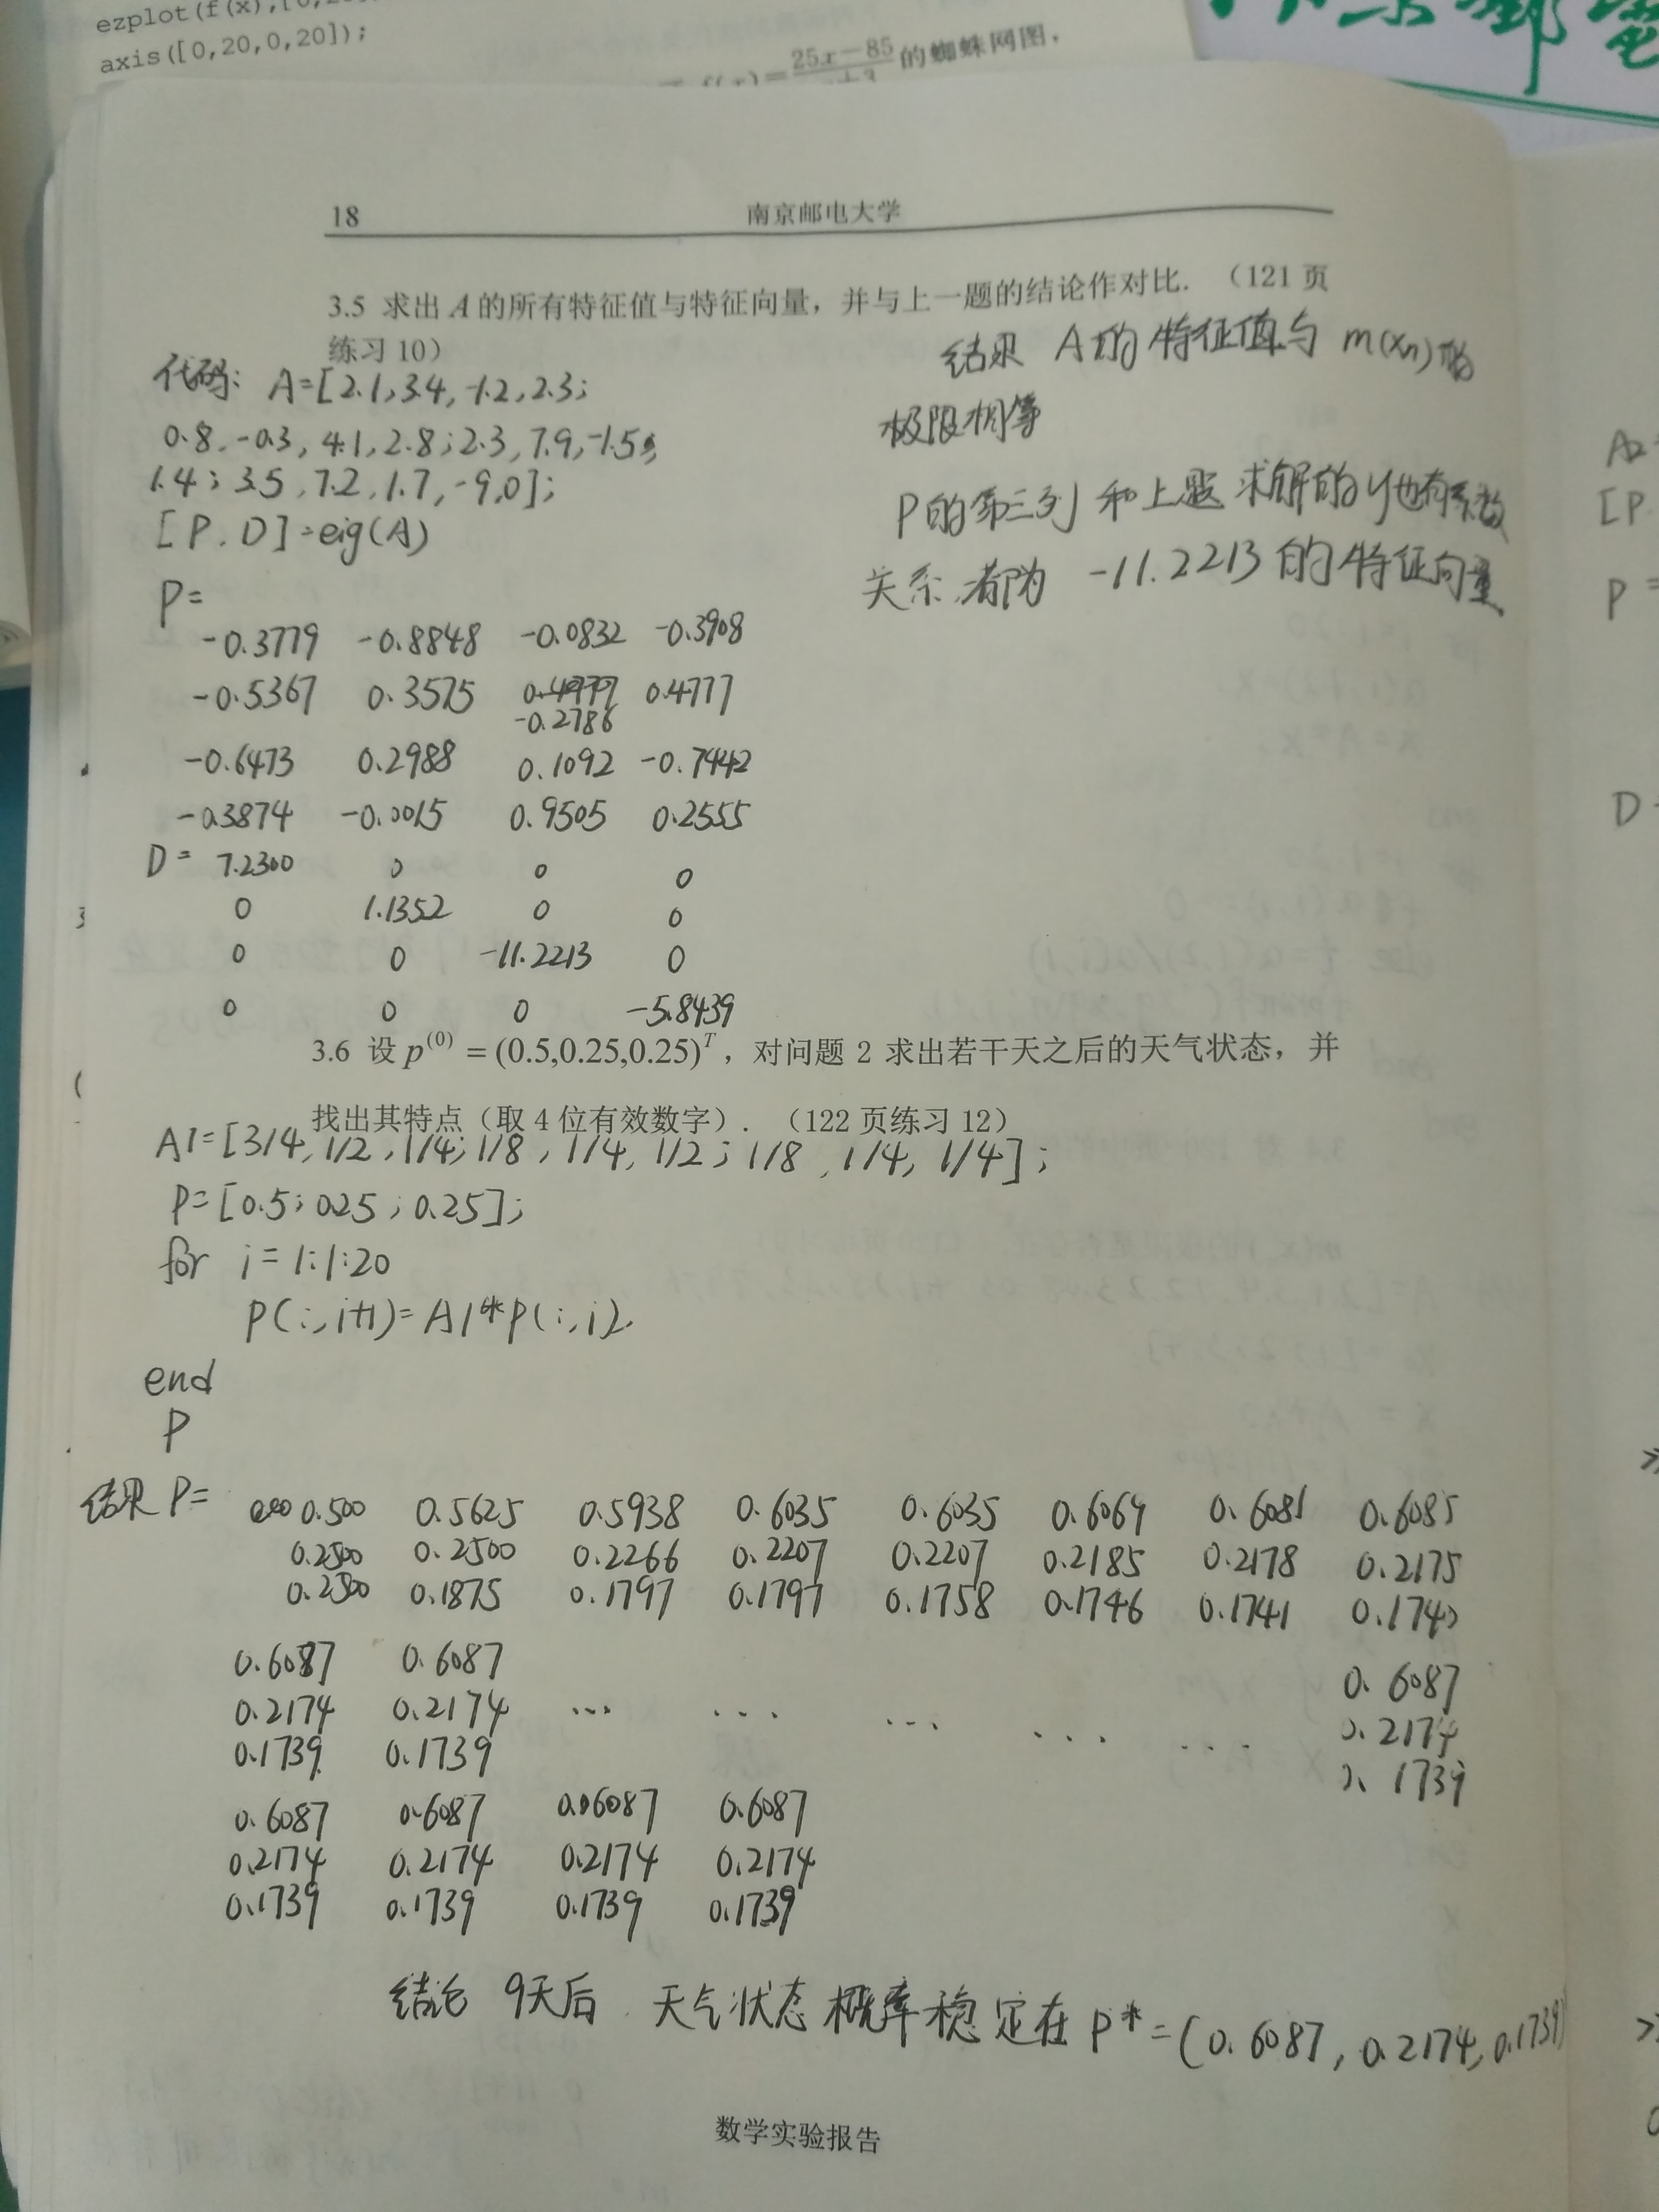 axis([0,20,0,20]);
25x-85
的蜘蛛网图，
18
南京邮电大学
3.5 求出 A 的所有特征值与特征向量，并与上一题的结论作对比．（121 页
练习 10）
代码: A=[2.1,3.4,-1.2,2.3;
0.8,-0.3,4.1,2.8;2.3,7.9,-1.5,
1.4;3.5,7.2,1.7,-9.0];
[P,D]=eig(A)
结果 A的特征值与 m(xn)的
极限相等
P的第三列和上题求解的y也有系数
关系,都为 -11.2213的特征向量
P=
-0.3779 -0.8848 -0.0832 -0.3908
-0.5367 0.3575 0.4777
-0.2786
-0.6473 0.2988 0.1092 -0.7442
-0.3874 -0.0015 0.9505 0.2555
D= 7.2300 0 0 0
0 1.1352 0 0
0 0 -11.2213 0
0 0 0 -5.8439
3.6 设 p(0) = (0.5,0.25,0.25)T，对问题 2 求出若干天之后的天气状态，并
找出其特点（取 4 位有效数字）．（122 页练习 12）
A1=[3/4,1/2,1/4;1/8,1/4,1/2;1/8,1/4,1/4];
P=[0.5;0.25;0.25];
for i=1:1:20
P(:,i+1)=A1*P(:,i).
end
P
结果 P= 0.500 0.5625 0.5938 0.6035 0.6035 0.6069 0.6081 0.6085
0.2500 0.2500 0.2266 0.2207 0.2207 0.2185 0.2178 0.2175
0.2500 0.1875 0.1797 0.1797 0.1758 0.1746 0.1741 0.1740
0.6087 0.6087 0.6087
0.2174 0.2174 ... ... ... ... ... 0.2174
0.1739 0.1739 0.1739
0.6087 0.6087 0.06087 0.6087
0.2174 0.2174 0.2174 0.2174
0.1739 0.1739 0.1739 0.1739
结论 9天后.天气状态概率稳定在P*=(0.6087,0.2174,0.1739)
数学实验报告
A2
[P
P =
D